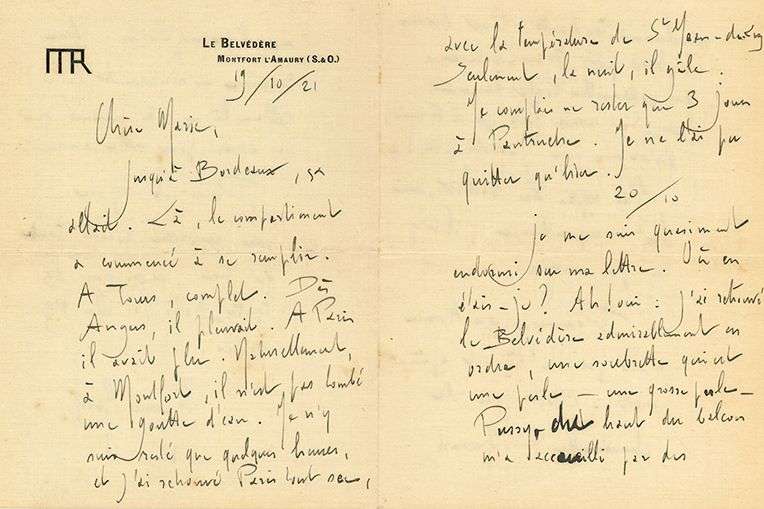 MR
LE BELVÉDÈRE
MONTFORT L'AMAURY (S.&O.)
19/10/21
Chère Marie,
jusqu'à Bordeaux, ça
allait. Là, le compartiment
a commencé à se remplir.
A Tours, complet. Dès
Angers, il pleuvait. A Paris
il avait plu. Naturellement,
à Montfort, il n'est pas tombé
une goutte d'eau. Je n'y
suis resté que quelques heures,
et j'ai retrouvé Paris tout sec,
avec la température de St Jean-de-Luz
Seulement, la nuit, il gèle.
Je comptais ne rester que 3 jours
à Pantruche. Je ne l'ai pu
quitter qu'hier.
20/10
Je me suis quasiment
endormi sur ma lettre. Où en
étais-je? Ah! oui : j'ai retrouvé
le Belvédère admirablement en
ordre, une soubrette qui est
une perle — une grosse perle —
Pussy, du haut du balcon
m'a accueilli par des